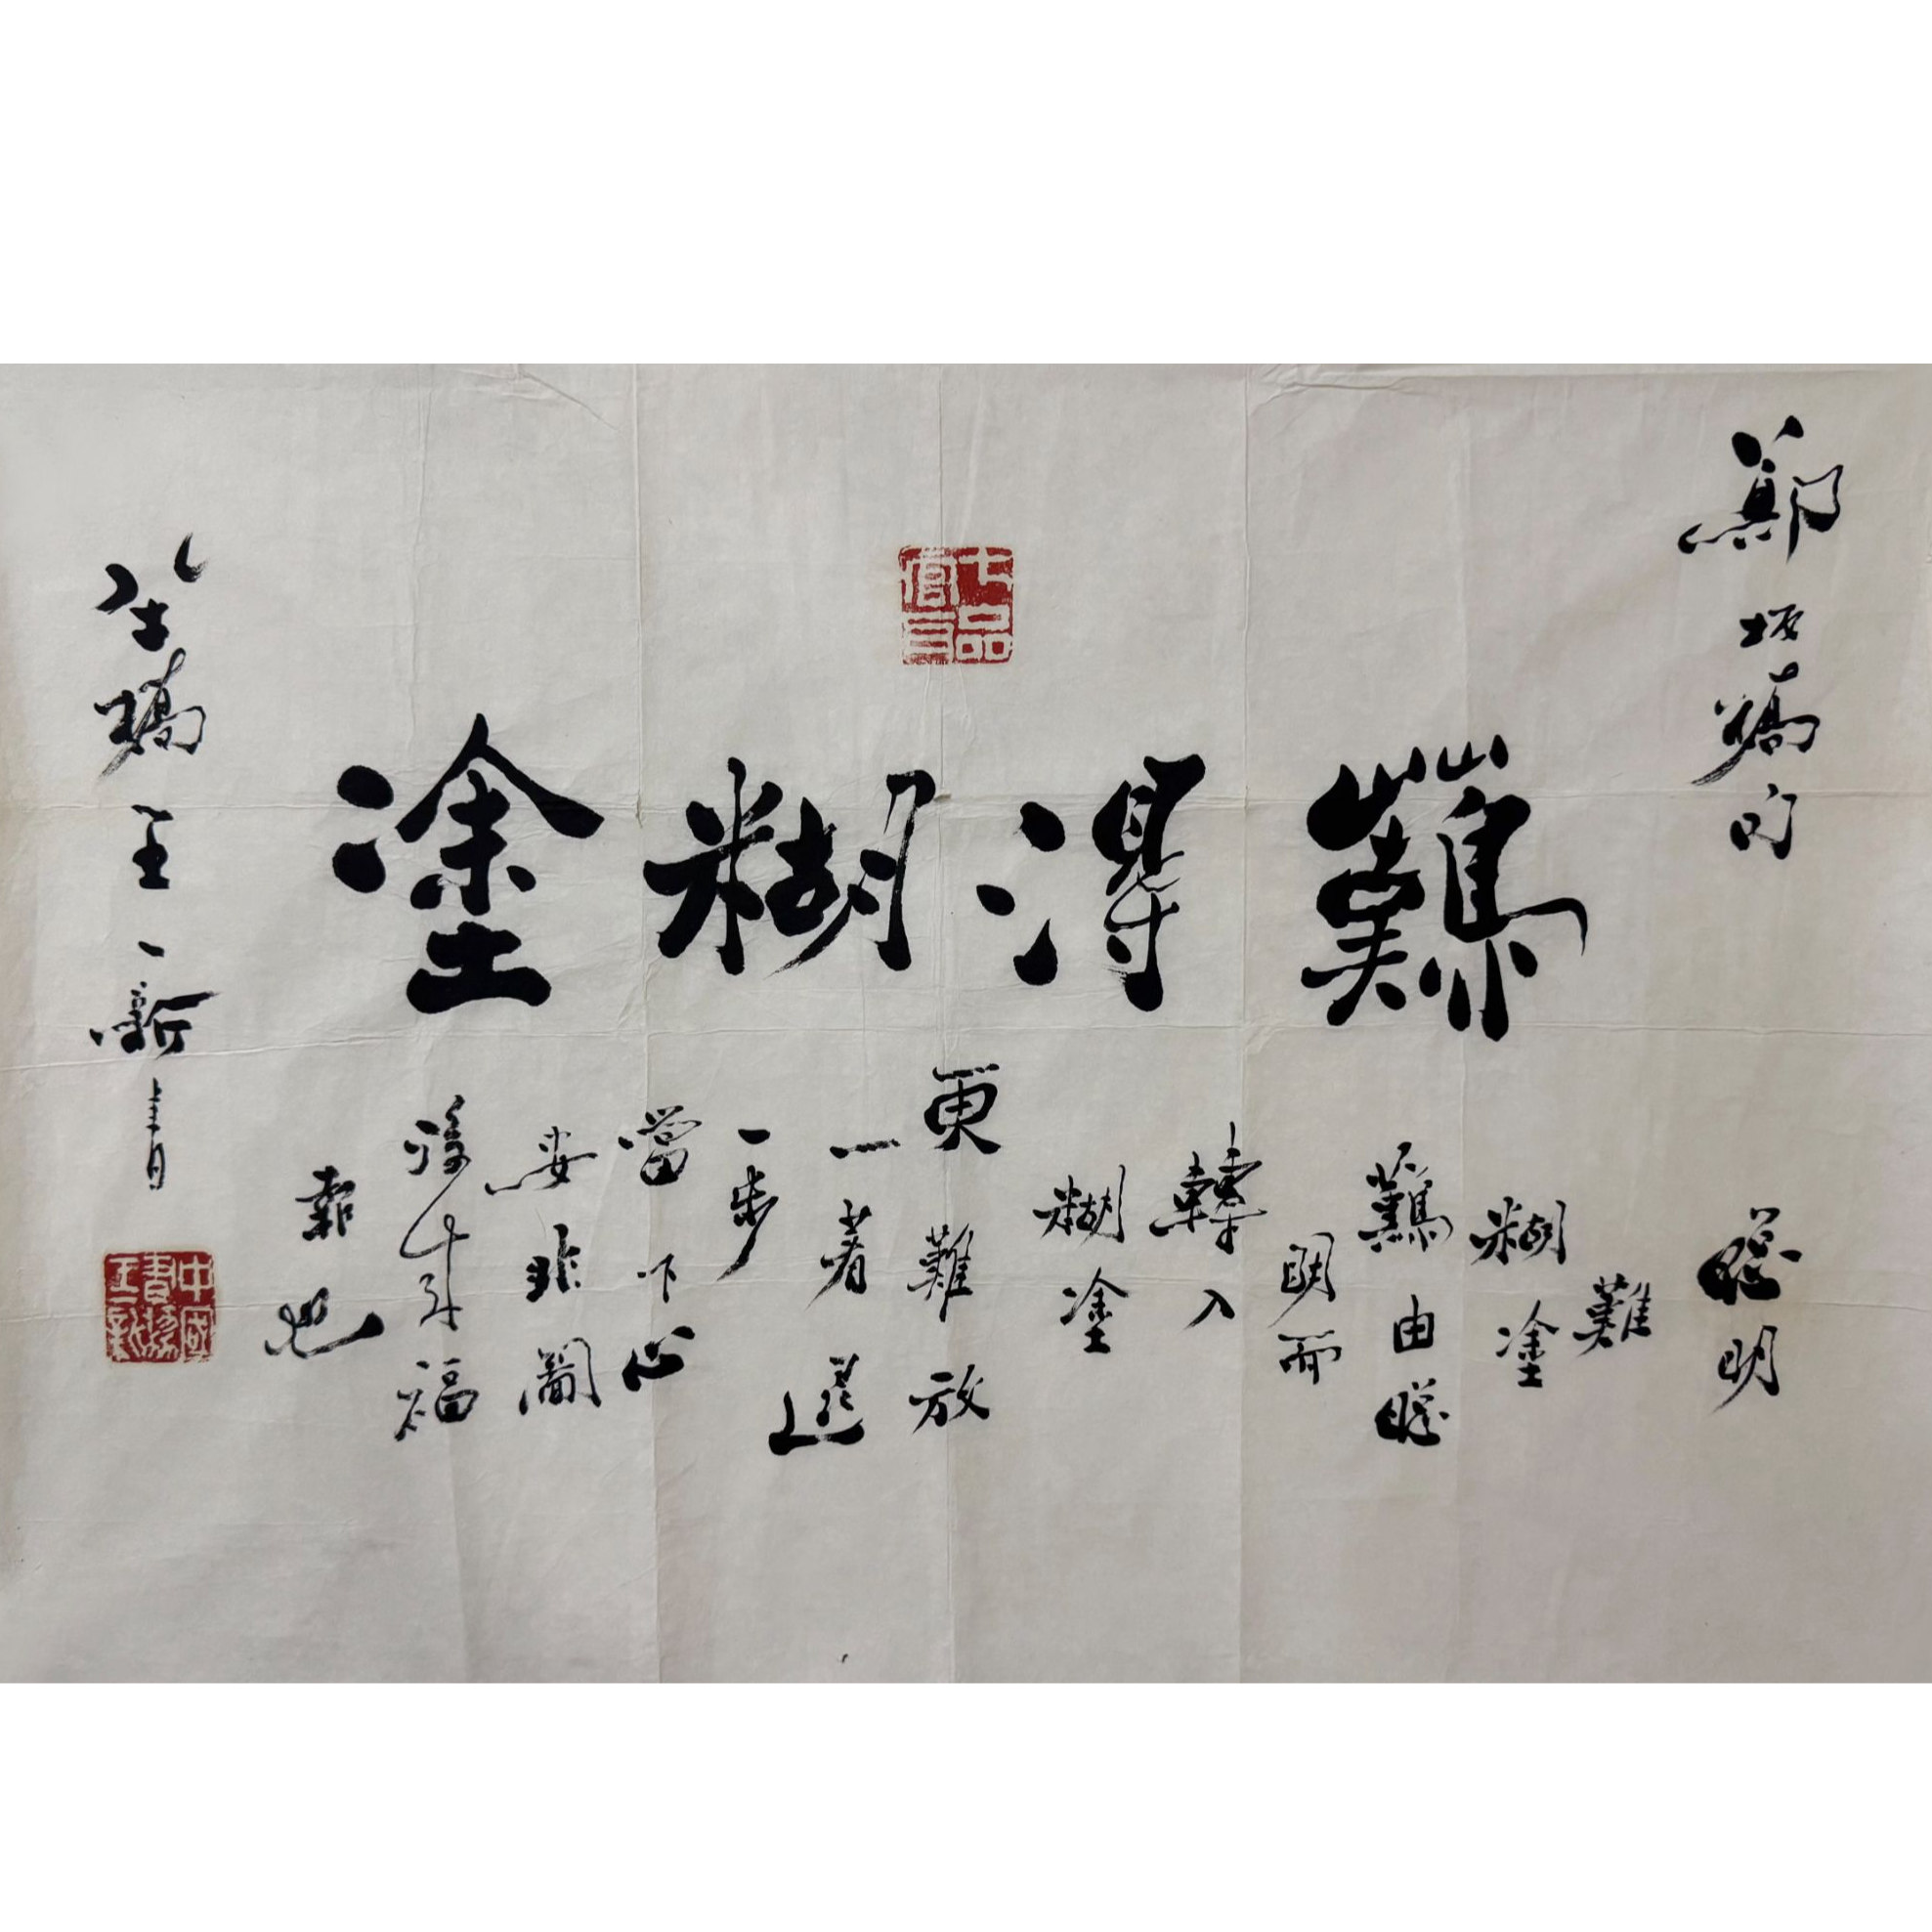 鄭板橋句
難得糊塗
七品官耳
聰明
難
糊塗
難由聰
明而
轉入
糊塗
更難放
一著退
一步
當下心
安非圖
後來福
報也
橋王一新書
中國書協王新